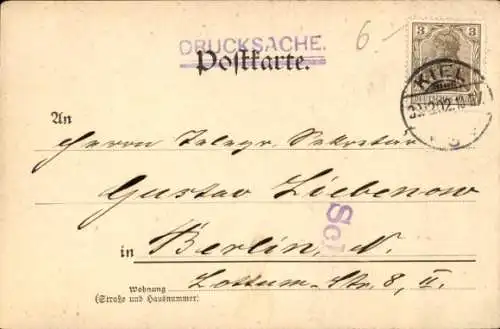 DRUCKSACHE.
6.–
Postkarte.
3
KIEL
An
Herrn Telegr. Sekretär
Gustav Liebenow
Sch
in Berlin, N.
Lottum-Str. 8, II.
Wohnung
(Straße und Hausnummer)